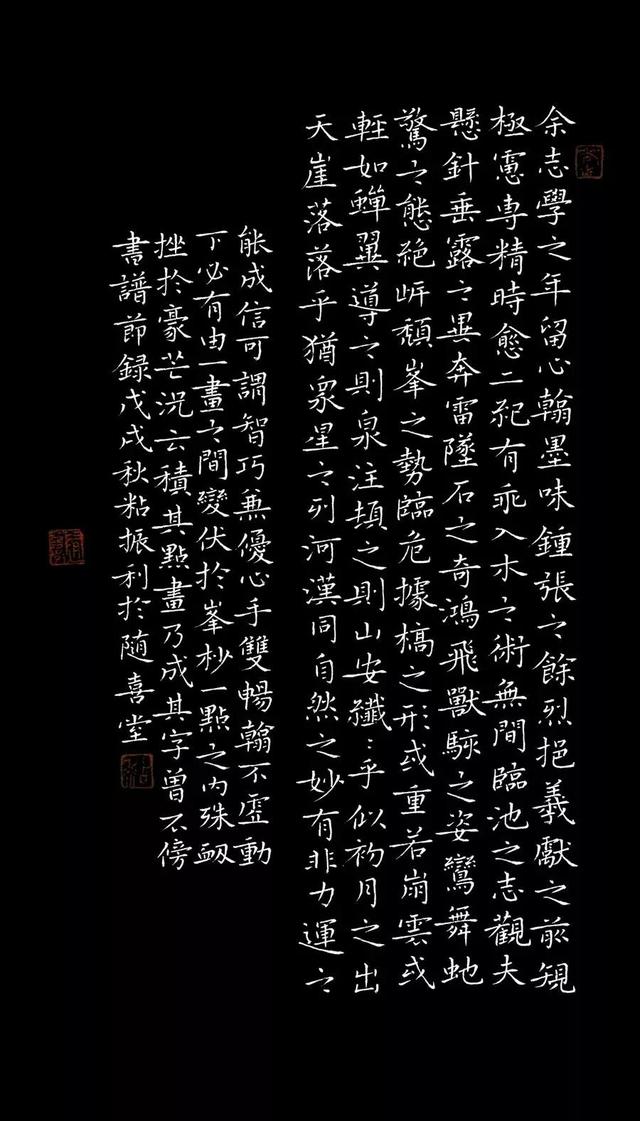 余志學之年留心翰墨味鍾張之餘烈挹羲獻之前規
極慮専精時愈二紀有乖入木之術無間臨池之志觀夫
懸針垂露之異奔雷墜石之奇鴻飛獸駭之姿鸞舞虵
驚之態絶岸頹峯之勢臨危據槁之形或重若崩雲或
輕如蟬翼導之則泉注頓之則山安纎々乎似初月之出
天崖落落乎猶衆星之列河漢同自然之妙有非力運之
能成信可謂智巧兼優心手雙暢翰不虛動
下必有由一畫之間變伏於峯杪一點之内殊衂
挫於豪芒況云積其點畫乃成其字曽不傍
書譜節録戊戌秋粘振利於随喜堂